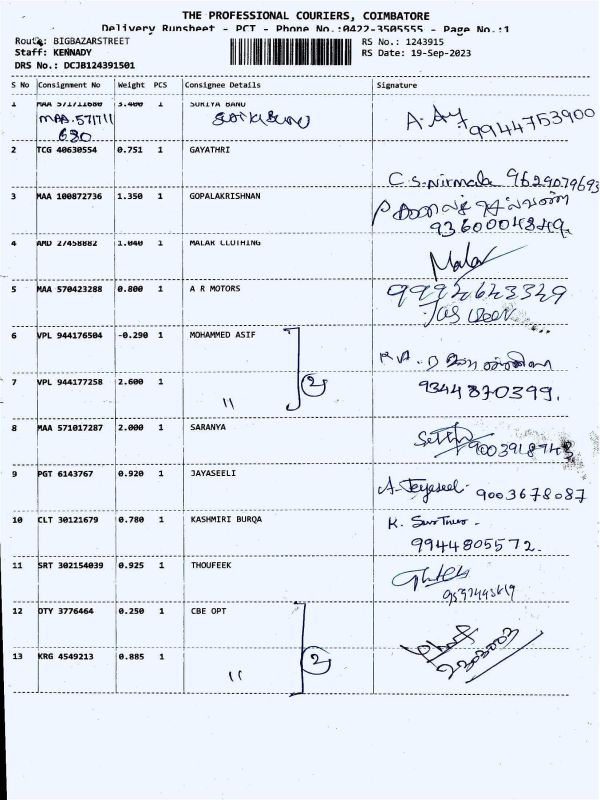 THE PROFESSIONAL COURIERS, COIMBATORE
Delivery Runsheet - PCT - Phone No.:0422-3505555 - Page No.:1
Route: BIGBAZARSTREET
RS No.: 1243915
Staff: KENNADY
RS Date: 19-Sep-2023
DRS No.: DCJB124391501
S No Consignment No Weight PCS Consignee Details Signature
1 MAA 571711680 3.400 1 SURIYA BANU
MAA.571711
680
A. 9944753900
2 TCG 40630554 0.751 1 GAYATHRI
C.S. Nirmala 9629079693
3 MAA 100872736 1.350 1 GOPALAKRISHNAN
9360004849
4 AMD 27458882 1.040 1 MALAR CLOTHING
Malar
5 MAA 570423288 0.800 1 A R MOTORS
9994643349
6 VPL 944176504 -0.290 1 MOHAMMED ASIF
2
7 VPL 944177258 2.600 1 "
9344870399.
8 MAA 571017287 2.000 1 SARANYA
9003918743
9 PGT 6143767 0.920 1 JAYASEELI
A. Jeyaseeli 9003678087
10 CLT 30121679 0.780 1 KASHMIRI BURQA
K.
9944805572.
11 SRT 302154039 0.925 1 THOUFEEK
12 OTY 3776464 0.250 1 CBE OPT
2
13 KRG 4549213 0.885 1 "